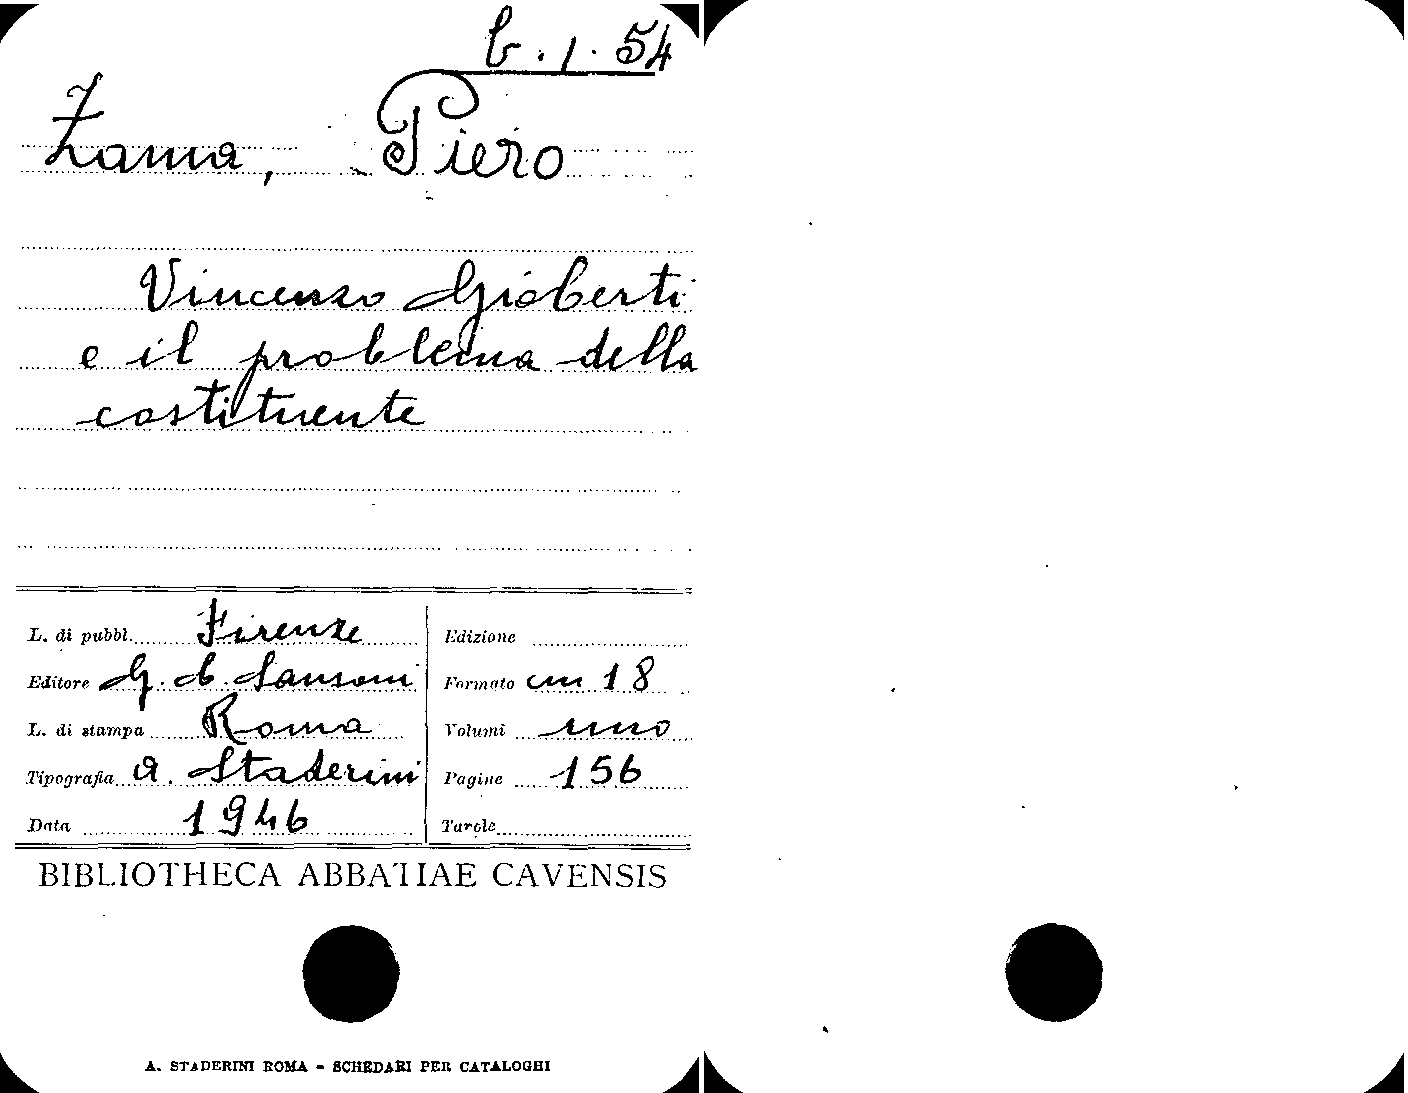 b.1.54
Zama, Piero
Vincenzo Gioberti
e il problema della
costituente
L. di pubbl. Firenze
Editore G. C. Sansoni
L. di stampa Roma
Tipografia A. Staderini
Data 1946
Edizione
Formato cm 18
Volumi uno
Pagine 156
Tavole
BIBLIOTHECA ABBATIAE CAVENSIS
A. STADERINI ROMA - SCHEDARI PER CATALOGHI